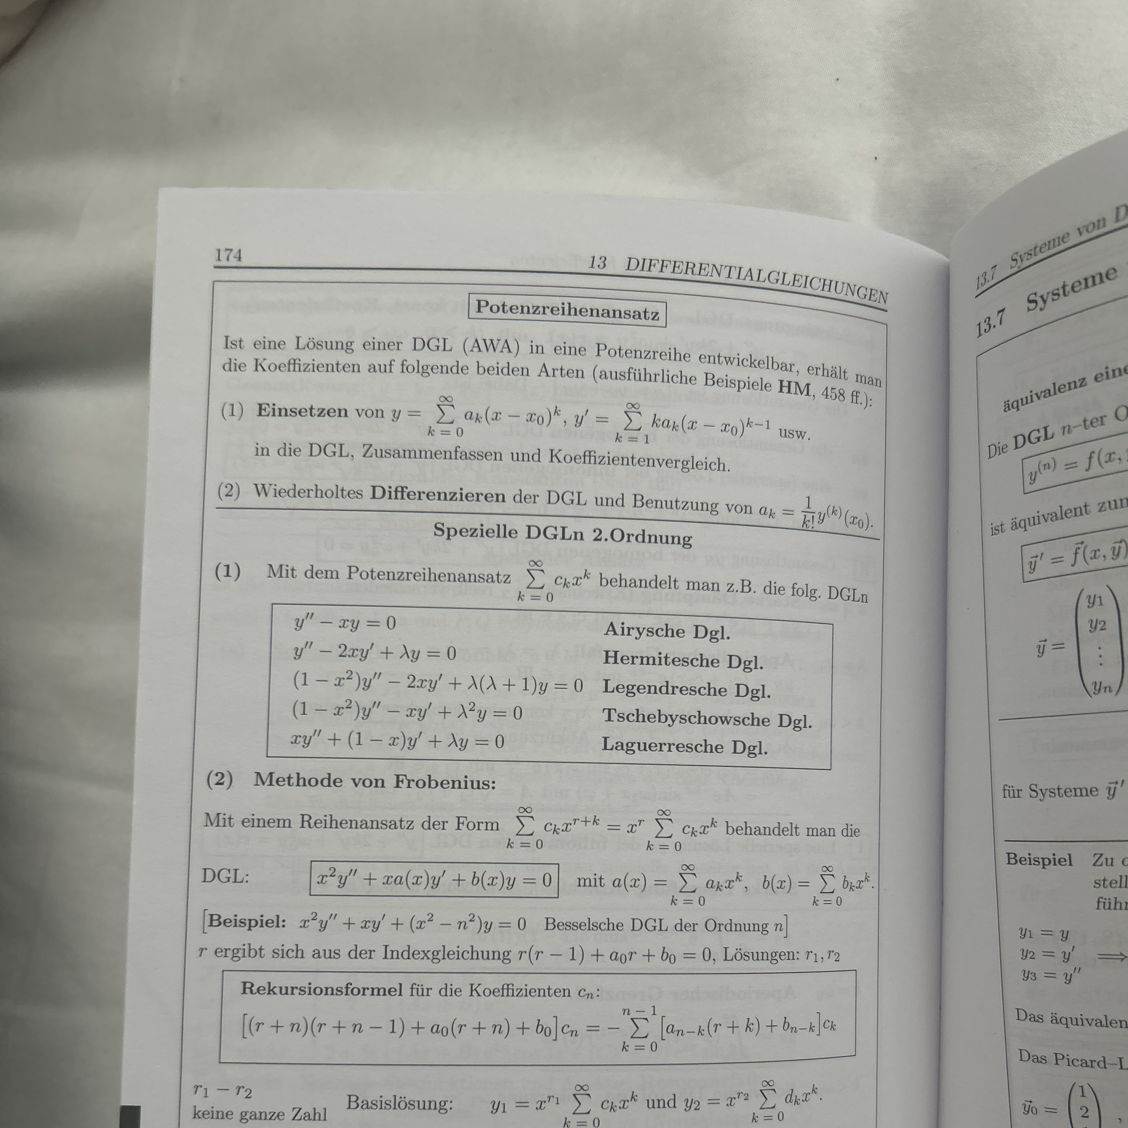 174
13 DIFFERENTIALGLEICHUNGEN
Potenzreihenansatz
Ist eine Lösung einer DGL (AWA) in eine Potenzreihe entwickelbar, erhält man
die Koeffizienten auf folgende beiden Arten (ausführliche Beispiele HM, 458 ff.):
(1) Einsetzen von y = ∑_{k=0}^{∞} a_k(x − x_0)^k, y′ = ∑_{k=1}^{∞} ka_k(x − x_0)^{k−1} usw.
in die DGL, Zusammenfassen und Koeffizientenvergleich.
(2) Wiederholtes Differenzieren der DGL und Benutzung von a_k = 1/k! y^{(k)}(x_0).
Spezielle DGLn 2.Ordnung
(1) Mit dem Potenzreihenansatz ∑_{k=0}^{∞} c_k x^k behandelt man z.B. die folg. DGLn
y″ − xy = 0 Airysche Dgl.
y″ − 2xy′ + λy = 0 Hermitesche Dgl.
(1 − x²)y″ − 2xy′ + λ(λ + 1)y = 0 Legendresche Dgl.
(1 − x²)y″ − xy′ + λ²y = 0 Tschebyschowsche Dgl.
xy″ + (1 − x)y′ + λy = 0 Laguerresche Dgl.
(2) Methode von Frobenius:
Mit einem Reihenansatz der Form ∑_{k=0}^{∞} c_k x^{r+k} = x^r ∑_{k=0}^{∞} c_k x^k behandelt man die
DGL: x²y″ + xa(x)y′ + b(x)y = 0 mit a(x) = ∑_{k=0}^{∞} a_k x^k, b(x) = ∑_{k=0}^{∞} b_k x^k.
[Beispiel: x²y″ + xy′ + (x² − n²)y = 0 Besselsche DGL der Ordnung n]
r ergibt sich aus der Indexgleichung r(r − 1) + a_0 r + b_0 = 0, Lösungen: r_1, r_2
Rekursionsformel für die Koeffizienten c_n:
[(r + n)(r + n − 1) + a_0(r + n) + b_0]c_n = − ∑_{k=0}^{n−1} [a_{n−k}(r + k) + b_{n−k}]c_k
r_1 − r_2
keine ganze Zahl
Basislösung: y_1 = x^{r_1} ∑_{k=0}^{∞} c_k x^k und y_2 = x^{r_2} ∑_{k=0}^{∞} d_k x^k.
13.7 Systeme von D
13.7 Systeme
äquivalenz eine
Die DGL n–ter O
y^{(n)} = f(x,
ist äquivalent zum
y⃗′ = f⃗(x, y⃗)
y⃗ = (y_1 y_2 ⋮ y_n)
für Systeme y⃗′
Beispiel Zu
stell
führ
y_1 = y
y_2 = y′ ⟹
y_3 = y″
Das äquivalen
Das Picard–L
y⃗_0 = (1 2